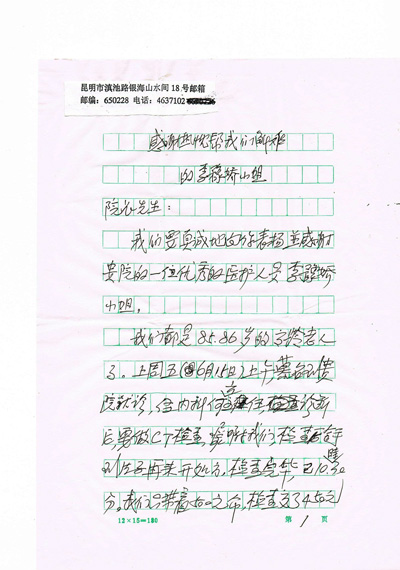 昆明市滇池路银海山水间18号邮箱
邮编：650228 电话：4637102
感谢 帮我们解难
的李静娇小姐
院长先生：
我们要真诚地向你表扬并感谢
贵院的一位优秀的医护人员李静娇
小姐。
我们都是85.86岁的高龄老人
了。上周五（6月15日）上午慕名到贵
院就诊，住内科 诊断
后，要做CT检查， 我们，检查
到 再来开处方，检查完毕，已10:30
分，我们只带着500元 ，检查交了450元
12×15=180 第1页